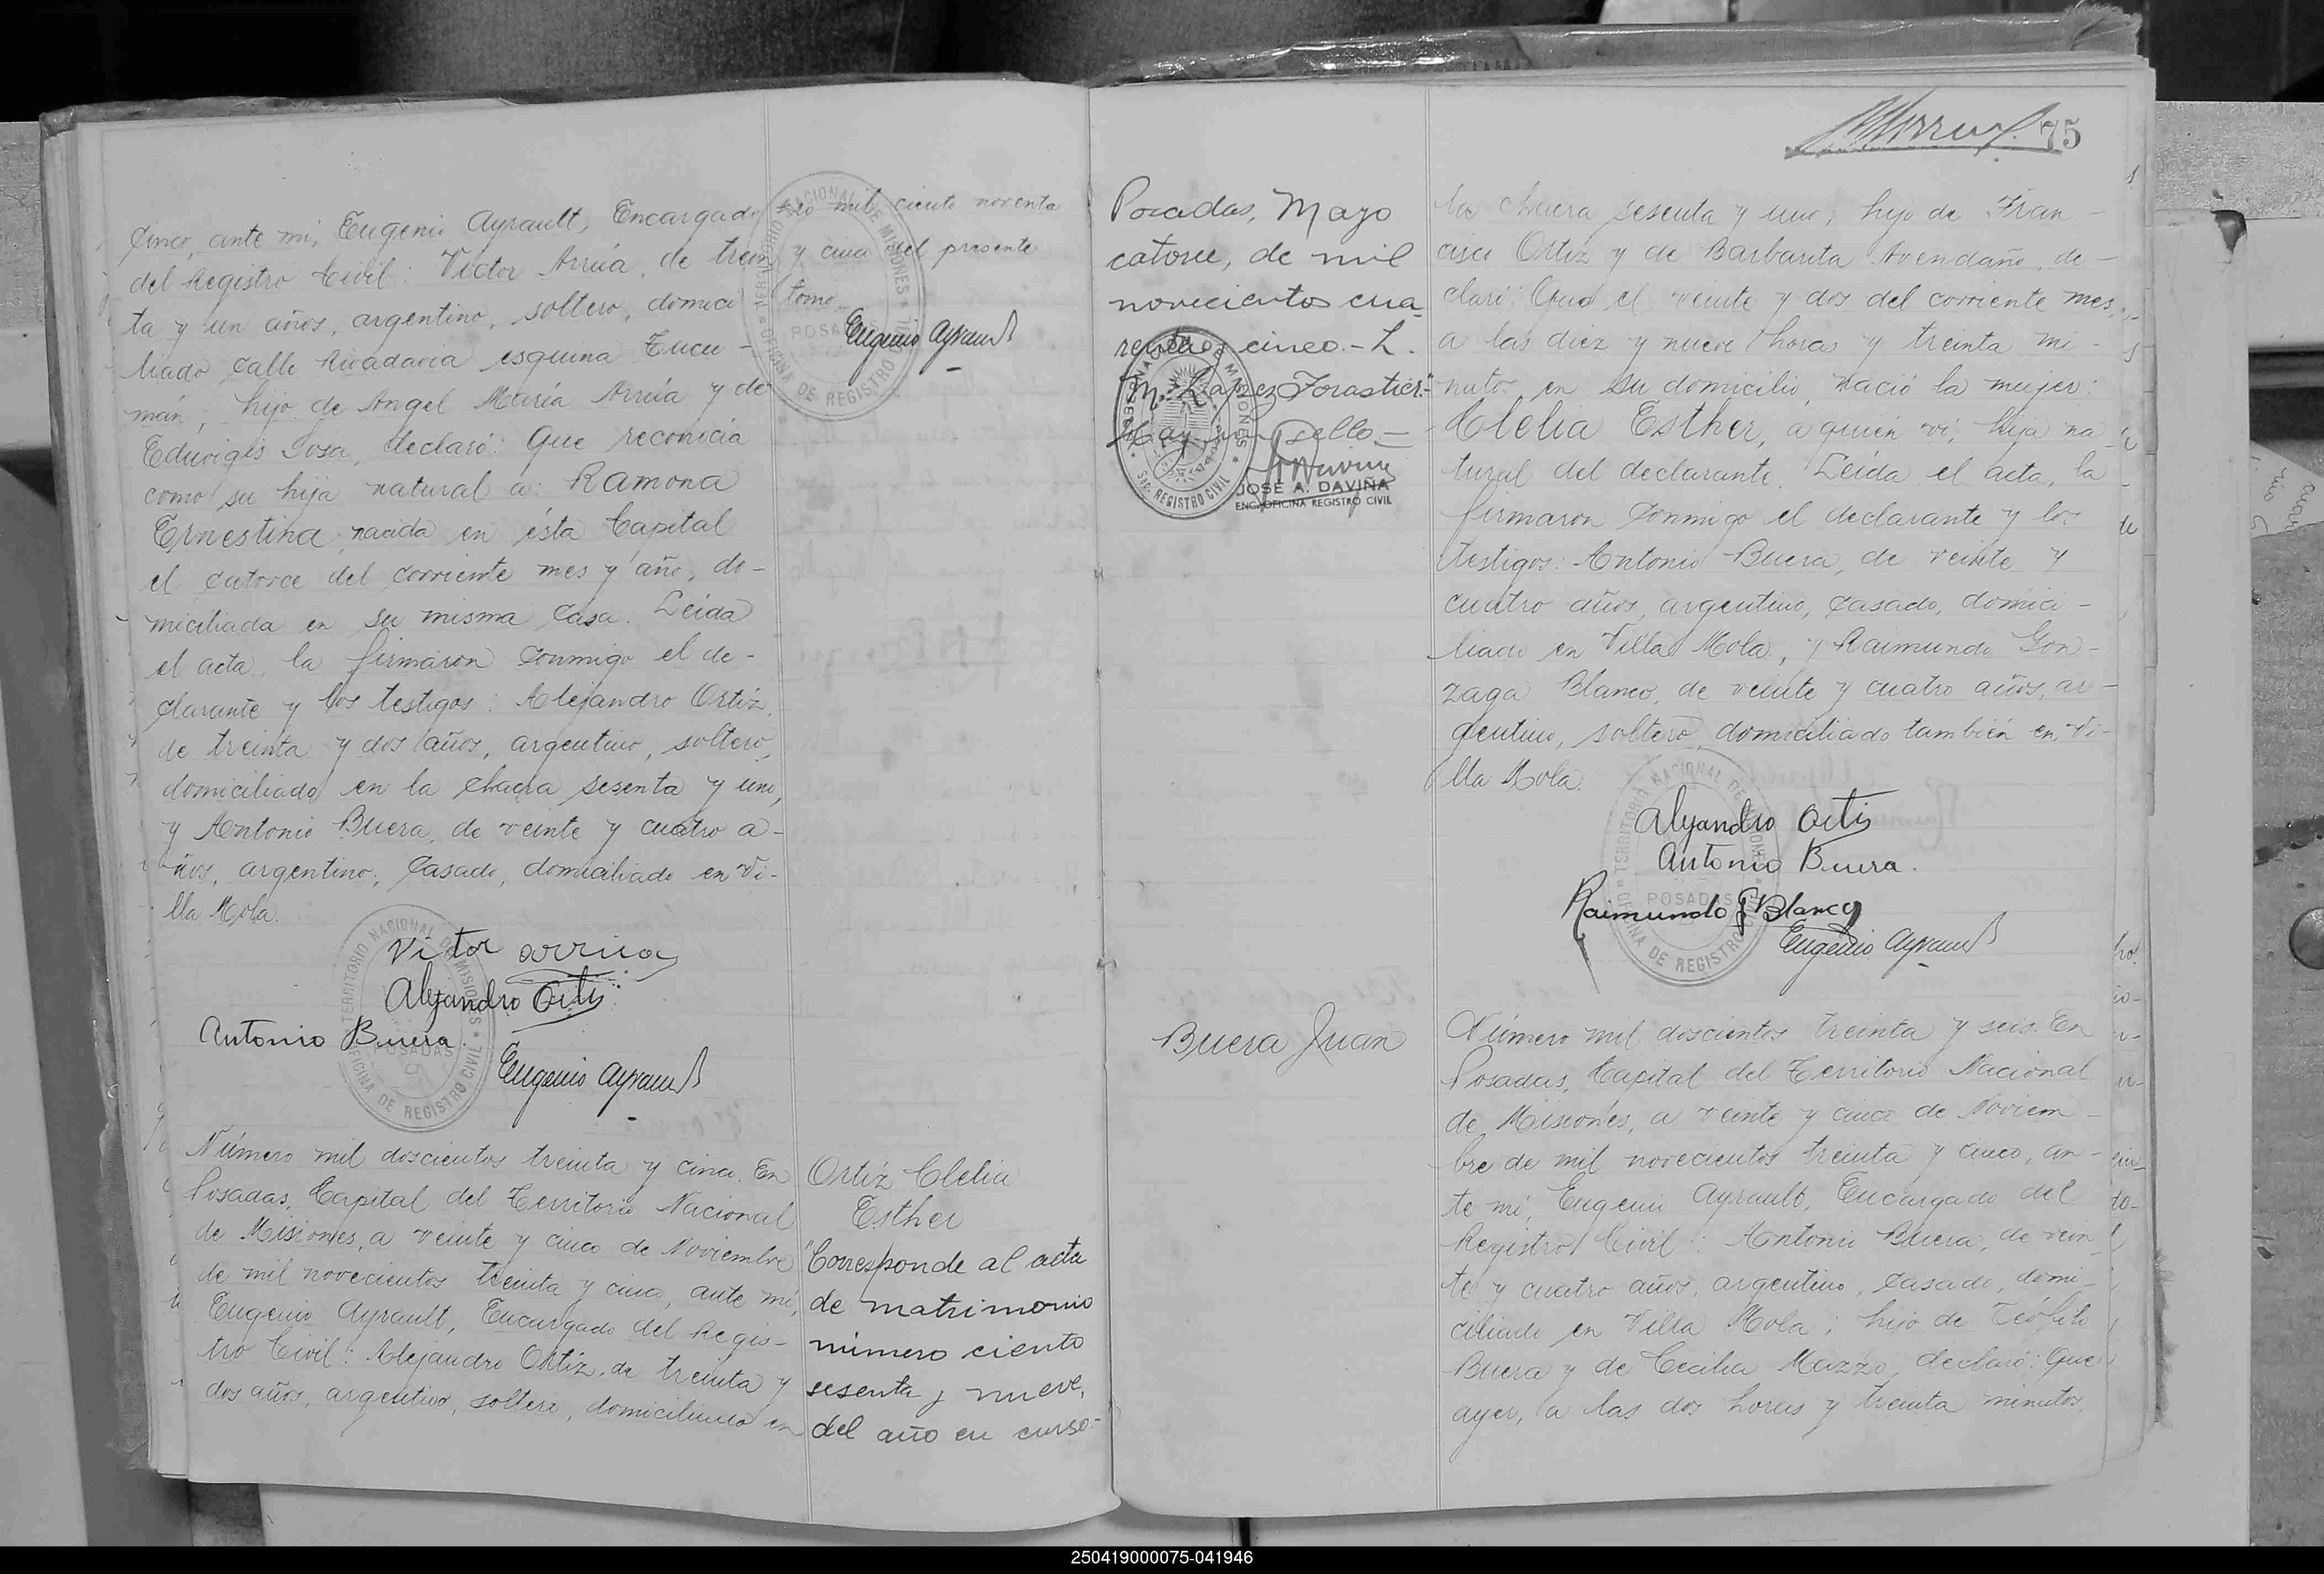 cinco, ante mi, Eugenio Ayrault, Encargado
del Registro Civil: Victor Arrúa, de trein
ta y un años, argentino, soltero, domici
liado calle Rivadavia esquina Tucu-
mán, hijo de Angel María Arrúa y de
Eduvigis Sosa, declaró: Que reconocía
como su hija natural a: Ramona
Ernestina, nacida en ésta Capital
el catorce del corriente mes y año, do-
miciliada en su misma casa. Leída
el acta, la firmaron conmigo el de-
clarante y los testigos: Alejandro Ortíz,
de treinta y dos años, argentino, soltero,
domiciliado en la chacra sesenta y uno,
y Antonio Buera, de veinte y cuatro a-
ños, argentino, casado, domiciliado en Vi-
lla Mola.
Vitor arriua
Alejandro Ortis
Antonio Buera.
Eugenio Ayrault
TERRITORIO NACIONAL DE MISIONES
POSADAS
OFICINA DE REGISTRO CIVIL
mil ciento noventa
y cinco del presente
tomo
Eugenio Ayrault
TERRITORIO NACIONAL DE MISIONES
POSADAS
OFICINA DE REGISTRO CIVIL
Número mil doscientos treinta y cinco. En
Posadas, Capital del Territorio Nacional
de Misiones, a veinte y cinco de Noviembre
de mil novecientos treinta y cinco, ante mí,
Eugenio Ayrault, Encargado del Regis-
tro Civil: Alejandro Ortíz, de treinta y
dos años, argentino, soltero, domiciliado en
Ortíz Clelia
Esther
"Corresponde al acta
de matrimonio
número ciento
sesenta y nueve,
del año en curso.-
75
Posadas, Mayo
catorce, de mil
novecientos cua
renta y cinco.- L.
M. Lopez Forastier."
Hay un sello.=
GOBERNACION DE MISIONES
SEC. REGISTRO CIVIL
JOSÉ A. DAVIÑA
ENC. OFICINA REGISTRO CIVIL
la chacra sesenta y uno, hijo de Fran-
cisco Ortíz y de Barbarita Avendaño, de-
claró: Que el veinte y dos del corriente mes,
a las diez y nueve horas y treinta mi-
nutos en su domicilio, nació la mujer:
Clelia Esther, a quien ví, hija na
tural del declarante. Leída el acta, la
firmaron conmigo el declarante y los
testigos: Antonio Buera, de veinte y
cuatro años, argentino, casado, domici-
liado en Villa Mola, y Raimundo Gon-
zaga Blanco, de veinte y cuatro años, ar-
gentino, soltero, domiciliado también en Vi-
lla Mola.
Alejandro Ortis
Antonio Buera.
Raimundo G Blanco
Eugenio Ayrault
TERRITORIO NACIONAL DE MISIONES
POSADAS
OFICINA DE REGISTRO CIVIL
Buera Juan
Número mil doscientos treinta y seis. En
Posadas, Capital del Territorio Nacional
de Misiones, a veinte y cinco de Noviem-
bre de mil novecientos treinta y cinco, an-
te mí, Eugenio Ayrault, Encargado del
Registro Civil: Antonio Buera, de vein
te y cuatro años, argentino, casado, domi-
ciliado en Villa Mola; hijo de Teófilo
Buera y de Cecilia Mazzo, declaró: Que
ayer, a las dos horas y treinta minutos,
250419000075-041946